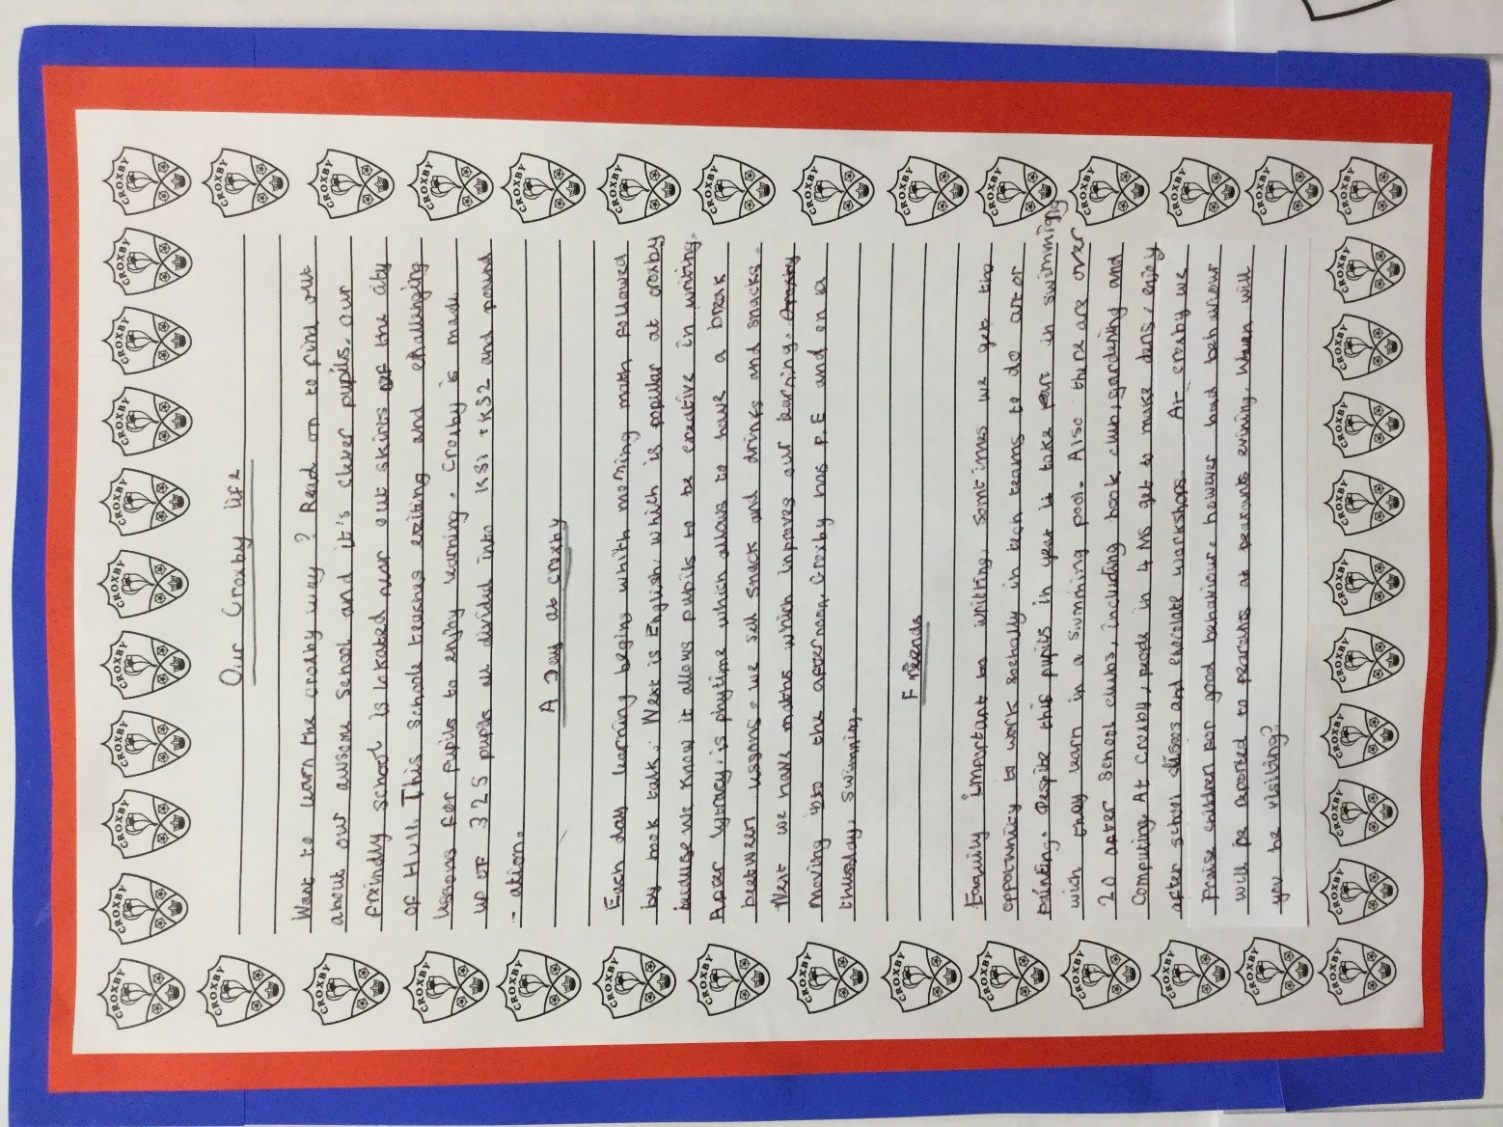 Our Croxby life
Want to learn the croxby way? Read on to find out
about our awsome school and it's clever pupils. Our
frindly school is lokated near out skirts of the city
of Hull. This schools teachs exiting and challenging
lessons for pupils to enjoy learning. Croxby is made
up of 325 pupils all divided into KS1 + KS2 and found
- ation.
A Day at croxby
Each day learning begins whith morning math followed
by book talk. Next is English, which is popular at croxby
because we know it allows pupils to be creative in writing.
After litracy, is playtime which allows to have a break
between lessons. we sell snack and drinks and snacks.
Next we have maths which inproves our learning.
Moving into the afternoon, Croxby has P.E and on a
thusday, swimming.
Freends
Equily important to writting, somtimes we get the
opportunity to work sochally in tech teams to do art or
painting. Despite this pupils in year 4 take part in swimming
wich they learn in a swimming pool. Also there are over
20 after school clubs, including book club, gardening and
Computing. At Croxby, people in 4 MS get to make dens, enjoy
after school and workshops. At croxby we
Praise children for good behaviour. however bad behaviour
will be reported to pearants at pearants evining. When will
you be visiting?
CROXBY